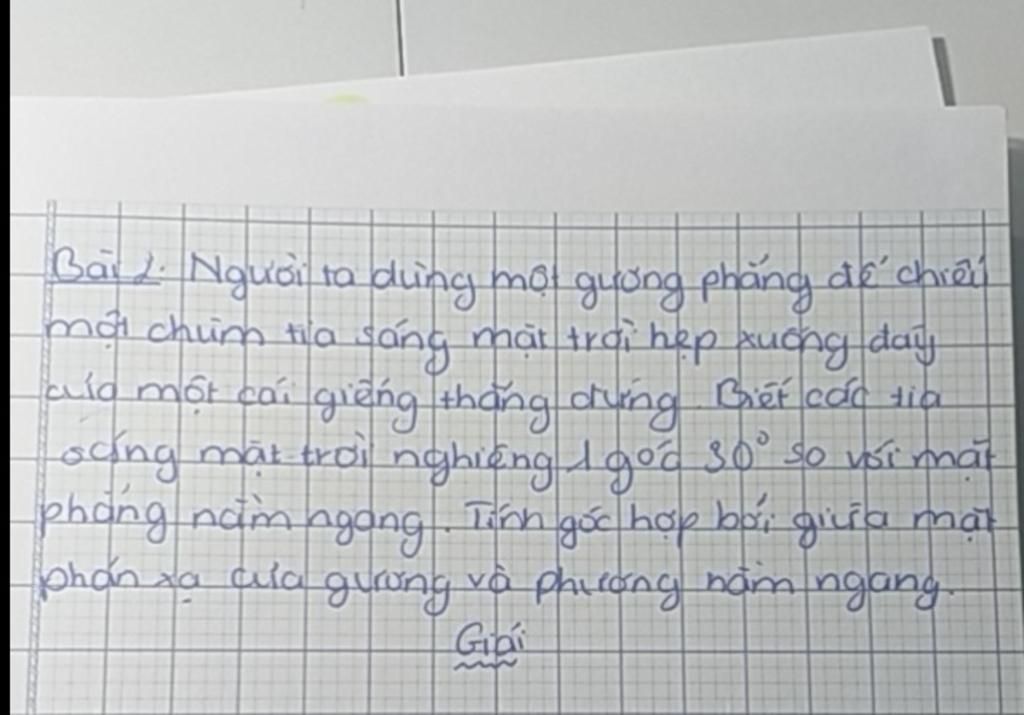 Bài 2. Người ta dùng một gương phẳng để chiếu
một chùm tia sáng mặt trời hẹp xuống đáy
của một cái giếng thẳng đứng. Biết các tia
sáng mặt trời nghiêng 1 góc 30° so với mặt
phẳng nằm ngang. Tính góc hợp bởi giữa mặt
phản xạ của gương và phương nằm ngang.
Giải